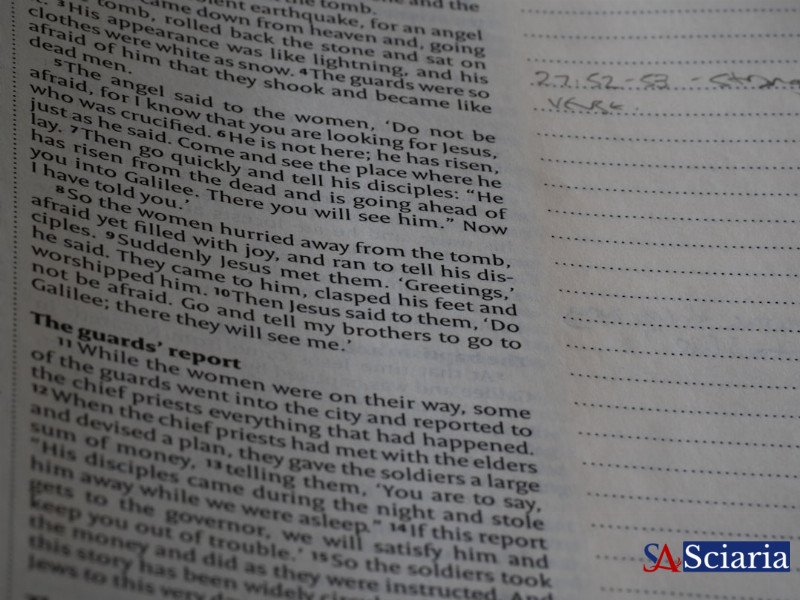 the tomb.
violent earthquake, for an angel
came down from heaven and, going
the tomb, rolled back the stone and sat on
it. 3 His appearance was like lightning, and his
clothes were white as snow. 4 The guards were so
afraid of him that they shook and became like
dead men.
5 The angel said to the women, ‘Do not be
afraid, for I know that you are looking for Jesus,
who was crucified. 6 He is not here; he has risen,
just as he said. Come and see the place where he
lay. 7 Then go quickly and tell his disciples: “He
has risen from the dead and is going ahead of
you into Galilee. There you will see him.” Now
I have told you.’
8 So the women hurried away from the tomb,
afraid yet filled with joy, and ran to tell his dis-
ciples. 9 Suddenly Jesus met them. ‘Greetings,’
he said. They came to him, clasped his feet and
worshipped him. 10 Then Jesus said to them, ‘Do
not be afraid. Go and tell my brothers to go to
Galilee; there they will see me.’
The guards’ report
11 While the women were on their way, some
of the guards went into the city and reported to
the chief priests everything that had happened.
12 When the chief priests had met with the elders
and devised a plan, they gave the soldiers a large
sum of money, 13 telling them, ‘You are to say,
“His disciples came during the night and stole
him away while we were asleep.” 14 If this report
gets to the governor, we will satisfy him and
keep you out of trouble.’ 15 So the soldiers took
the money and did as they were instructed. And
this story has been widely
Jews to this very
27:52-53 -
verse
SA Sciaria